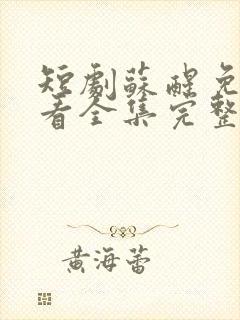 短劇蘇醒免
看全集完整
黄海蕾